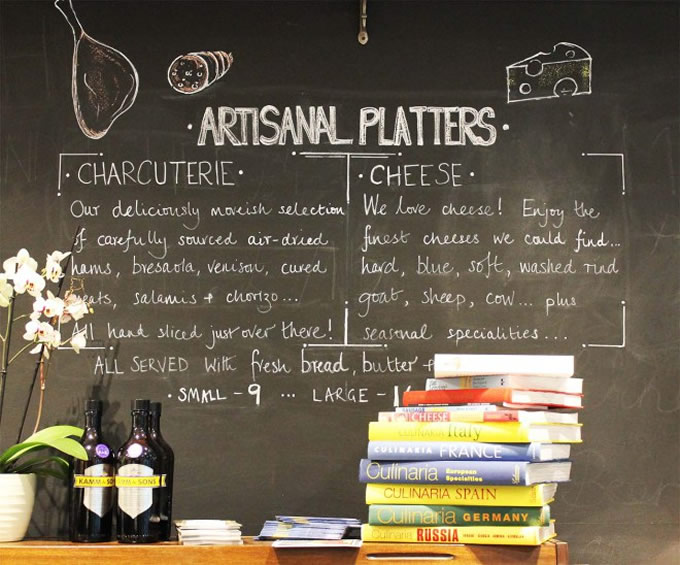 ARTISANAL PLATTERS
CHARCUTERIE
Our deliciously moreish selection
of carefully sourced air-dried
hams, bresaola, venison, cured
meats, salamis + chorizo...
All hand sliced just over there!
CHEESE
We love cheese! Enjoy the
finest cheeses we could find...
hard, blue, soft, washed rind
goat, sheep, cow... plus
seasonal specialities...
ALL SERVED with fresh bread, butter +
SMALL - 9 ... LARGE -
KAMM & SONS
& SONS
CHEESE
CULINARIA Italy
CULINARIA FRANCE
Culinaria European Specialties
CULINARIA SPAIN
CULINARIA GERMANY
CULINARIA RUSSIA